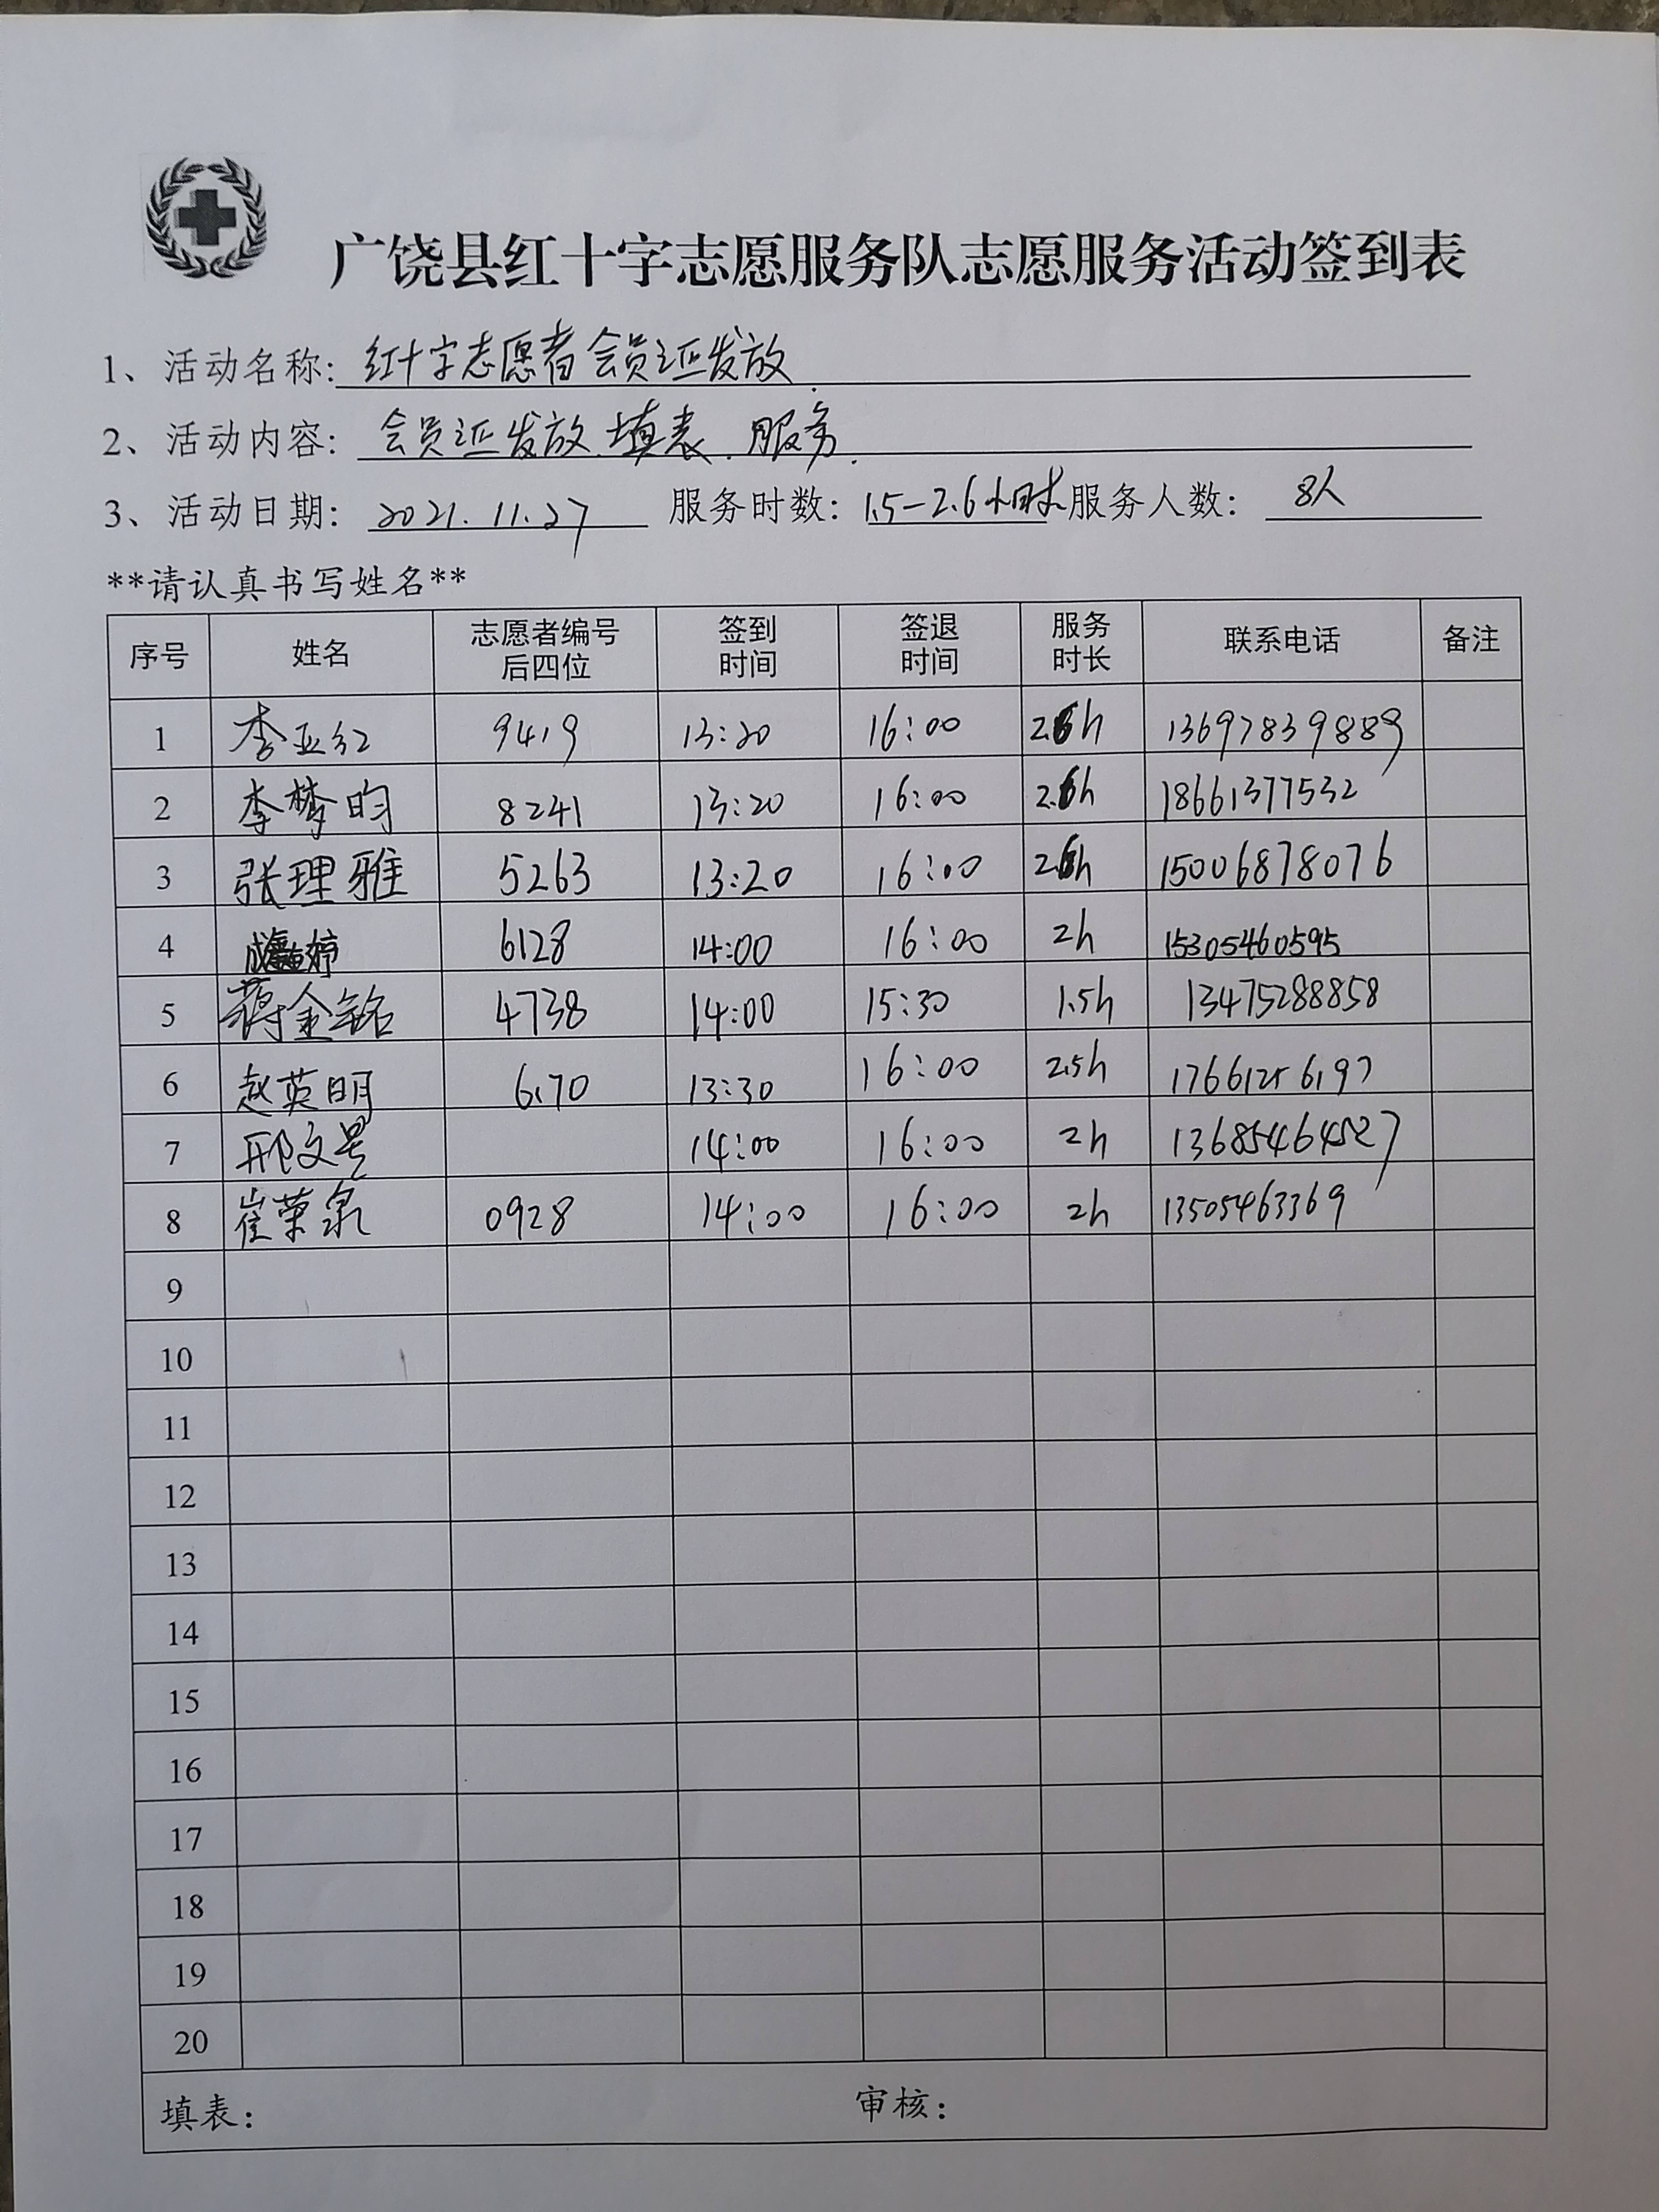 广饶县红十字志愿服务队志愿服务活动签到表
1、活动名称: 红十字志愿者会员证发放.
2、活动内容: 会员证发放.填表.服务.
3、活动日期: 2021.11.27 服务时数: 1.5-2.6小时 服务人数: 8人
**请认真书写姓名**
序号 姓名 志愿者编号后四位 签到时间 签退时间 服务时长 联系电话 备注
1 李亚红 9419 13:20 16:00 2.6h 13697839889
2 李梦昀 8241 13:20 16:00 2.6h 18661377532
3 张理雅 5263 13:20 16:00 2.6h 15006878076
4 成 婷 6128 14:00 16:00 2h 15305460595
5 蒋金铭 4738 14:00 15:30 1.5h 13475288858
6 赵英明 6170 13:30 16:00 2.5h 17661256197
7 邢文 14:00 16:00 2h 13685464527
8 崔荣泉 0928 14:00 16:00 2h 13505463369
9
10
11
12
13
14
15
16
17
18
19
20
填表: 审核: